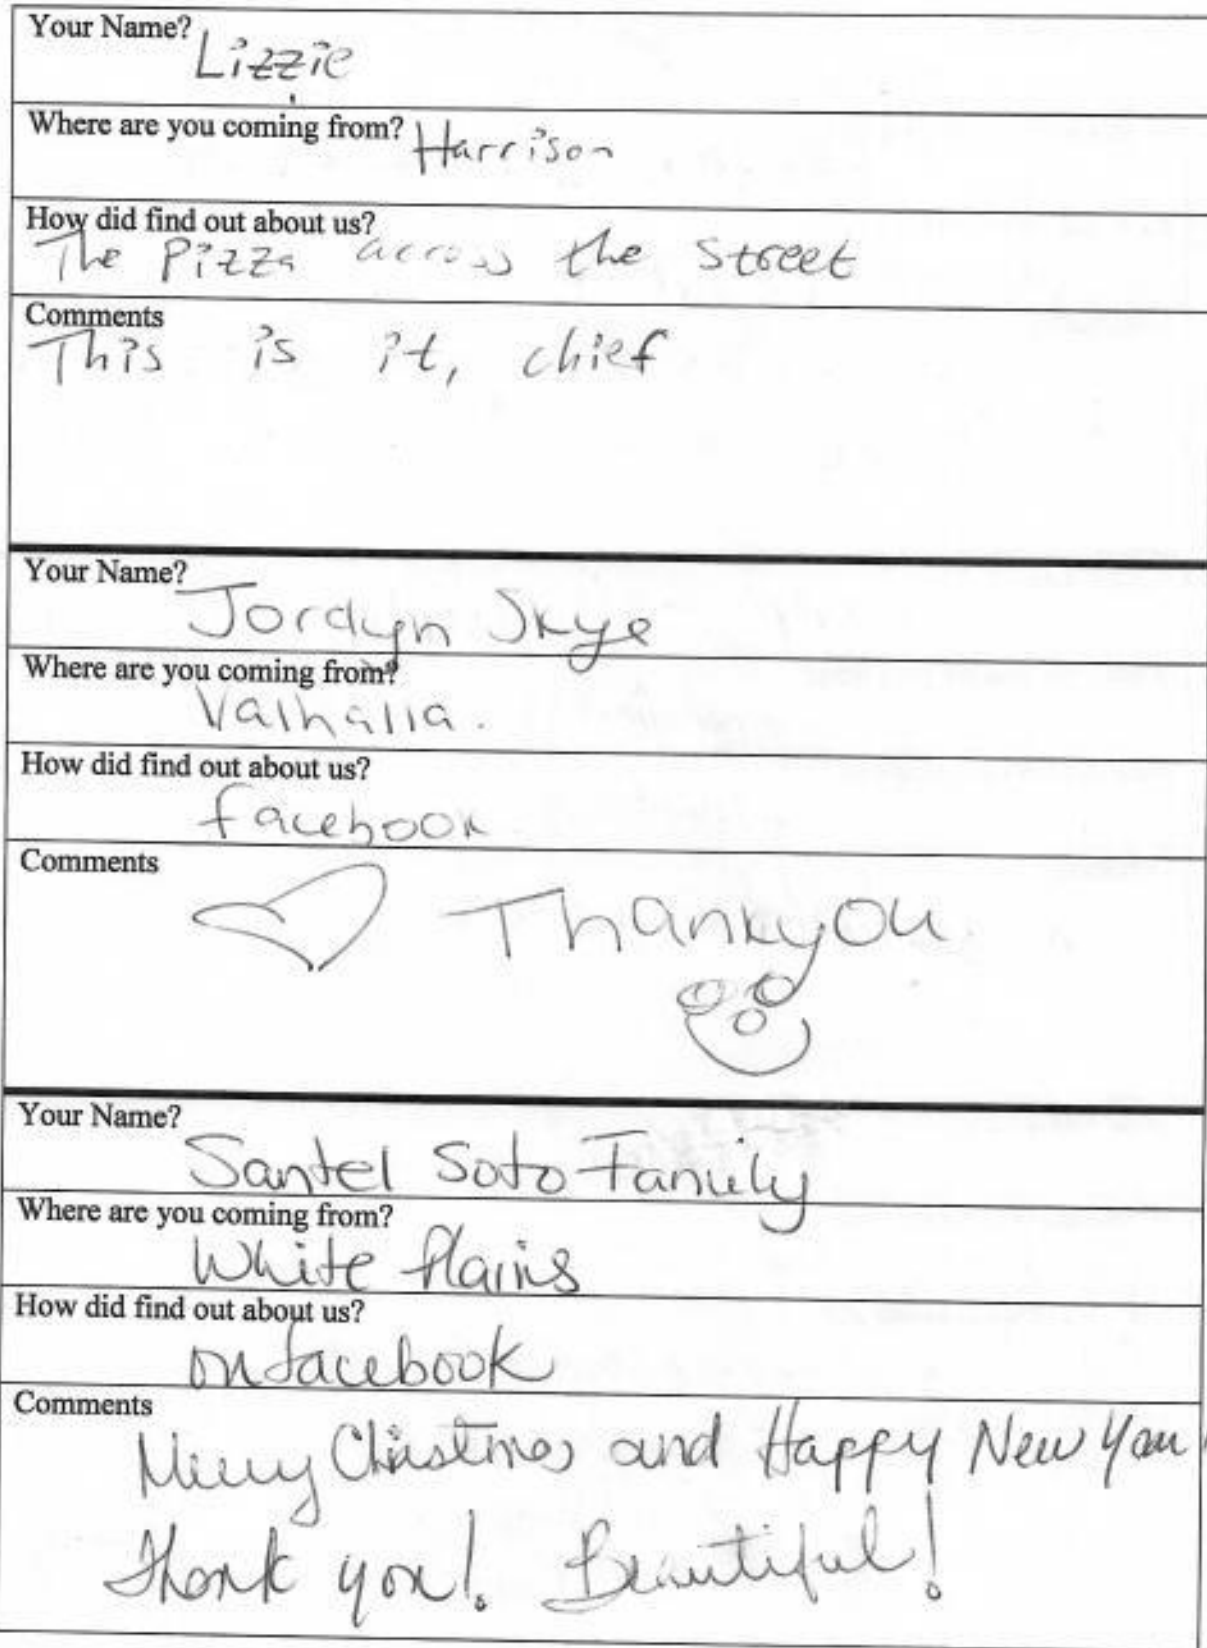 Your Name? Lizzie
Where are you coming from? Harrison
How did find out about us?
The Pizza across the street
Comments
This is it, chief
Your Name?
Jordyn Skye
Where are you coming from?
Valhalla.
How did find out about us?
facebook
Comments
Thankyou
Your Name?
Santel Soto Family
Where are you coming from?
White Plains
How did find out about us?
on facebook
Comments
Merry Christmas and Happy New Year
Thank you! Beautiful!